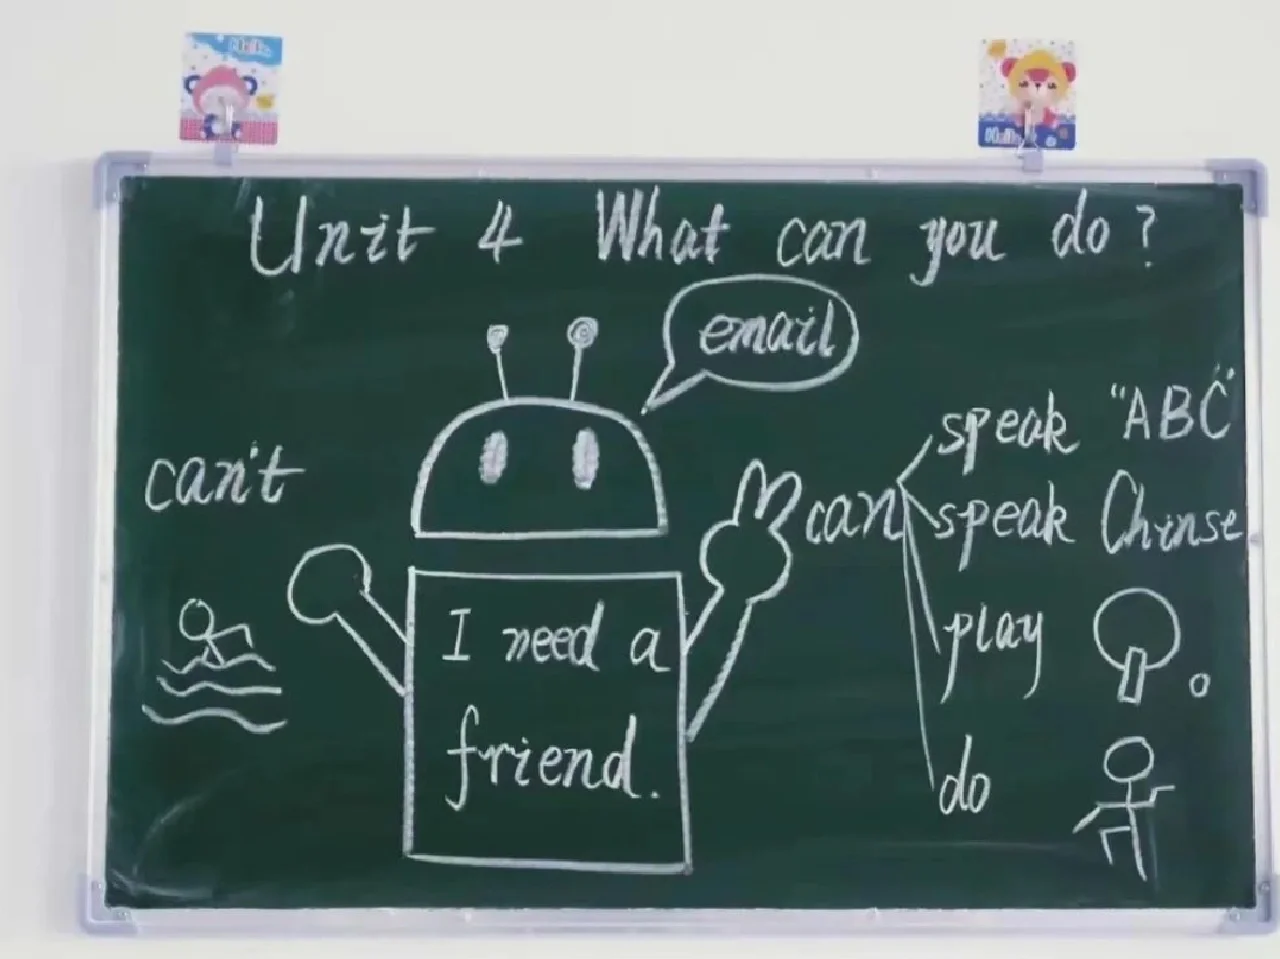 Unit 4 What can you do?
email
can't
can
speak "ABC"
speak Chinse
play
do
I need a
friend.